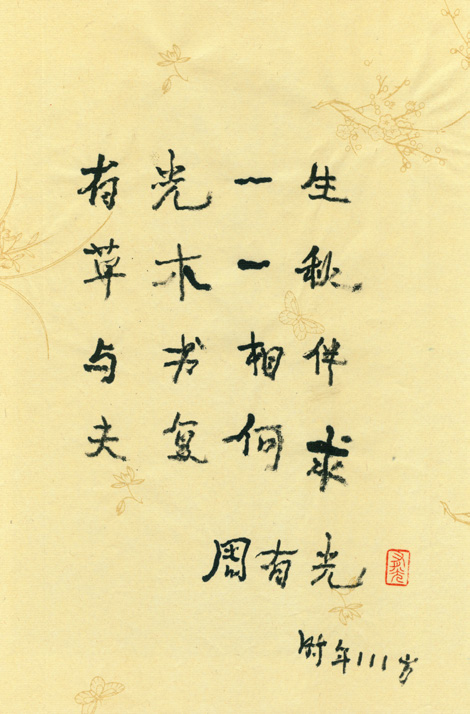 有光一生
草木一秋
与书相伴
夫复何求
周有光
有光
时年111岁